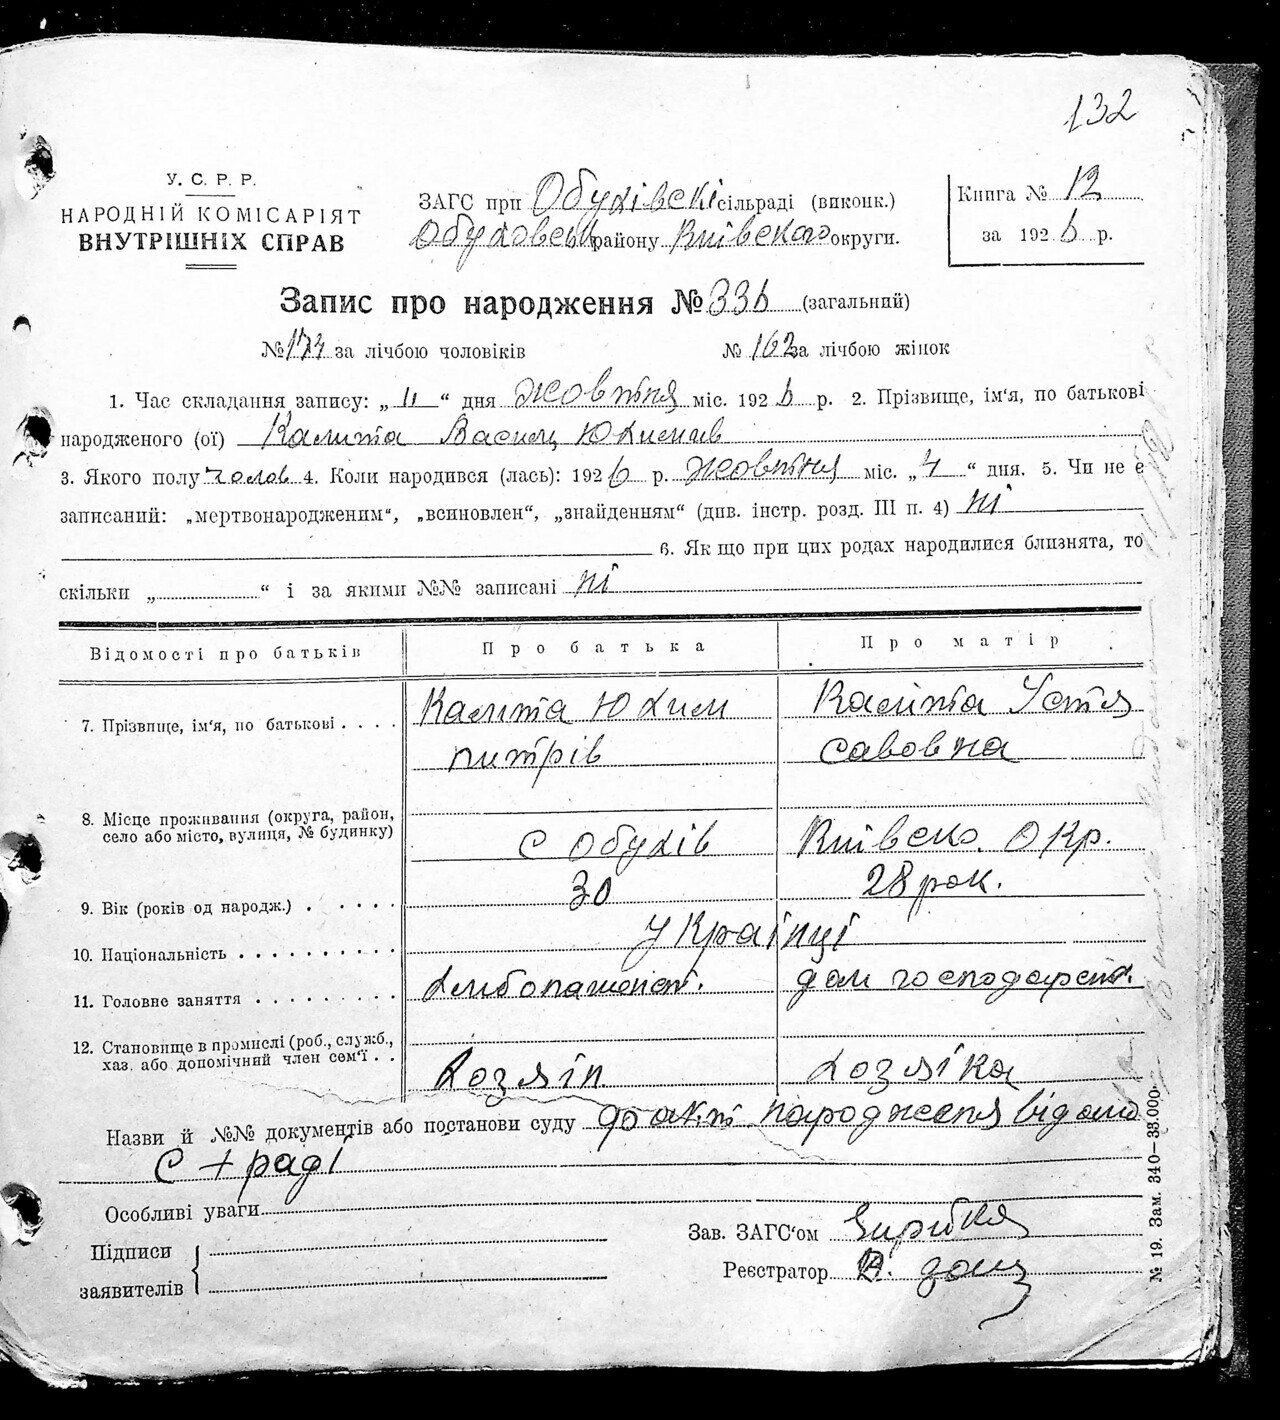 132
У. С. Р. Р.
НАРОДНІЙ КОМІСАРІЯТ
ВНУТРІШНІХ СПРАВ
ЗАГС при Обухівскі сільраді (виконк.)
Обуховськ району Київского округи.
Книга № 12
за 1926 р.
Запис про народження № 336 (загальний)
№ 174 за лічбою чоловіків № 162 за лічбою жінок
1. Час складання запису: „ 11 “ дня жовтня міс. 1926 р. 2. Прізвище, ім‘я, по батькові
народженого (ої) Калита Василь Юхимів
3. Якого полу чолов 4. Коли народився (лась): 1926 р. жовтня міс. „ 4 “ дня. 5. Чи не є
записаний: „мертвонародженим“, „всиновлен“, „знайденням“ (див. інстр. розд. III п. 4) ні
6. Як що при цих родах народилися близнята, то
скільки „ “ і за якими №№ записані ні
Відомості про батьків Про батька Про матір
7. Прізвище, ім‘я, по батькові . . . . Калита Юхим Калита Устя
питрів савовна
8. Місце проживання (округа, район,
село або місто, вулиця, № будинку) с Обухів Київско. Окр.
9. Вік (років од народж.) . . . . . 30 28 рок.
10. Національність . . . . . . . . . . Українці
11. Головне заняття . . . . . . . . . хлибопашест. дом господарств.
12. Становище в промислі (роб., служб.,
хаз. або допомічний член сем‘ї . . Хозяін Хозяіка
Назви й №№ документів або постанови суду до акт народження від
с + раді
Особливі уваги
Підписи
заявителів
Зав. ЗАГС‘ом
Реєстратор
№ 19. Зам. 340—33.000.